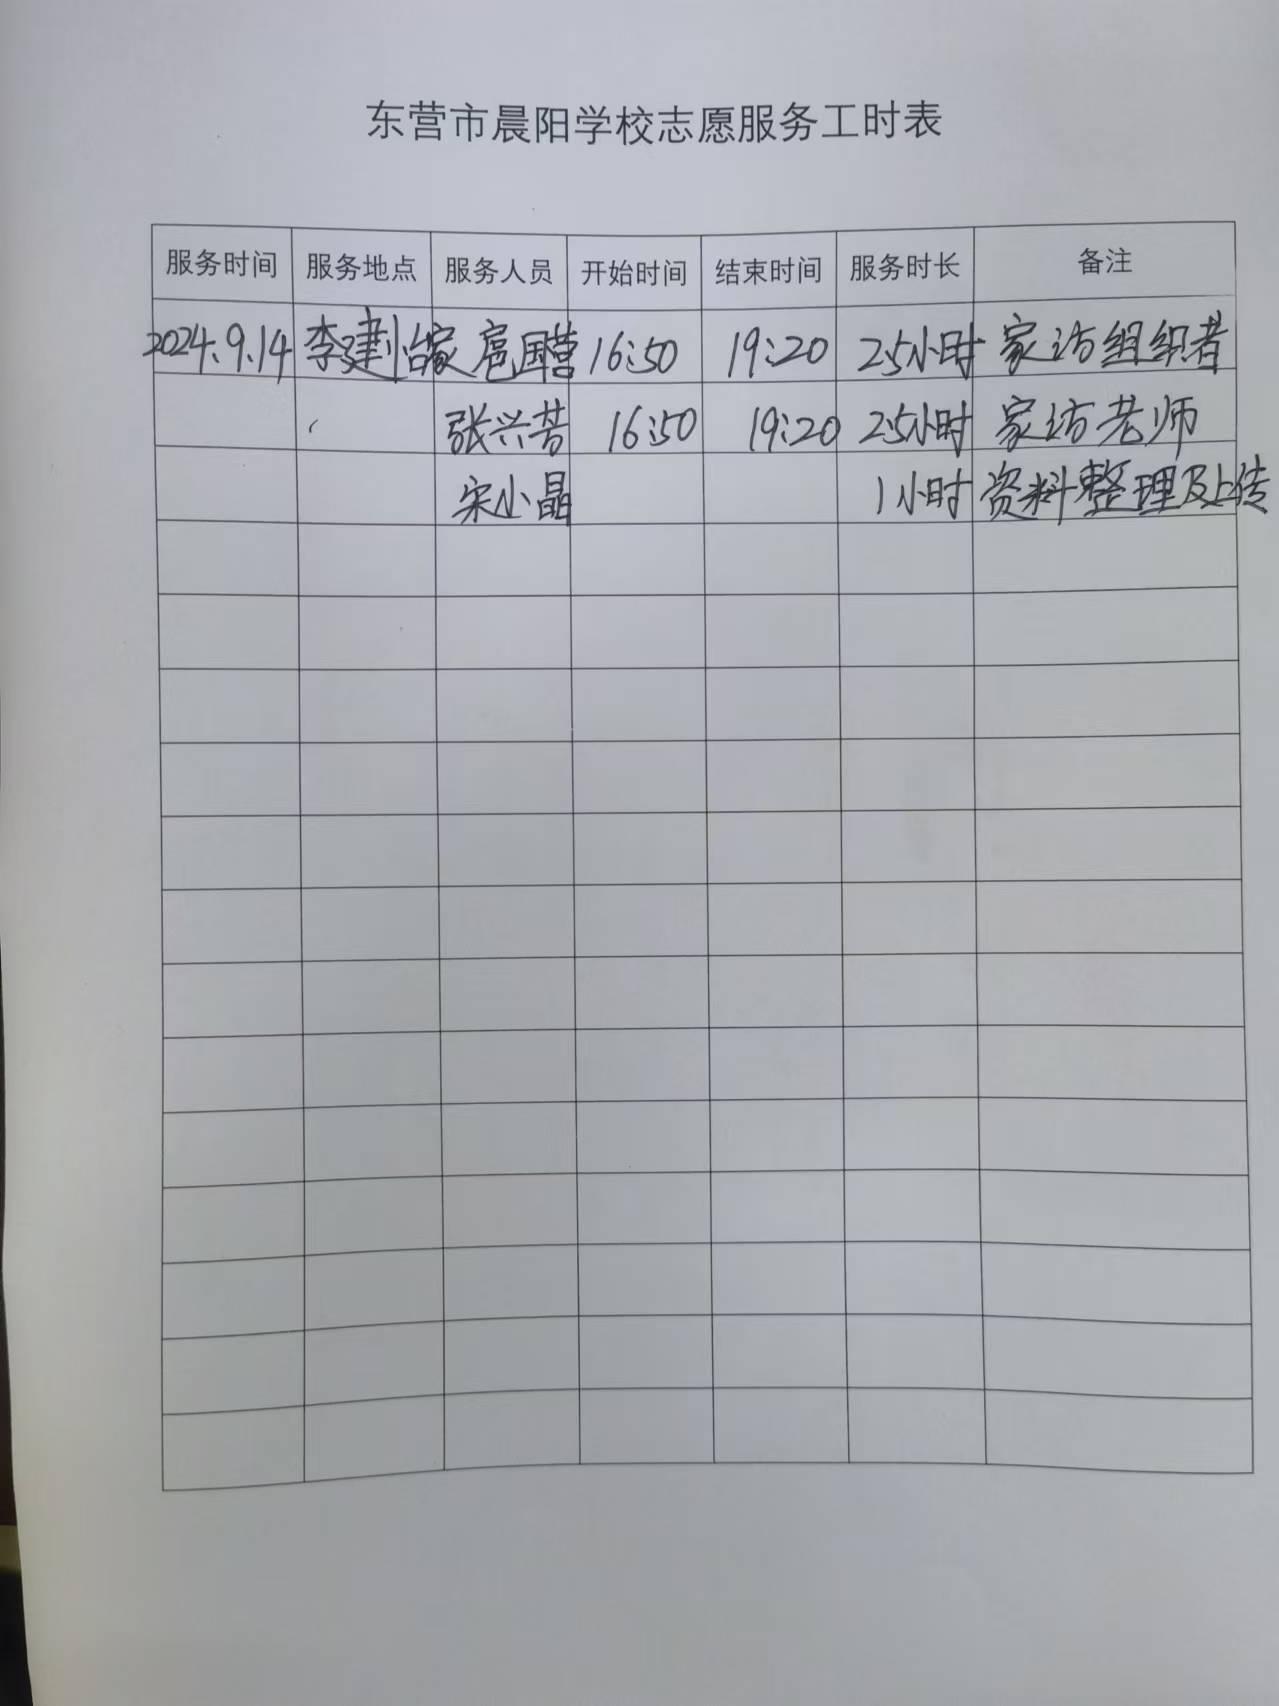 东营市晨阳学校志愿服务工时表
服务时间 服务地点 服务人员 开始时间 结束时间 服务时长 备注
2024.9.14 李建怡家 扈国营 16:50 19:20 2.5小时 家访组织者
张兴芳 16:50 19:20 2.5小时 家访老师
宋小晶 1小时 资料整理及上传